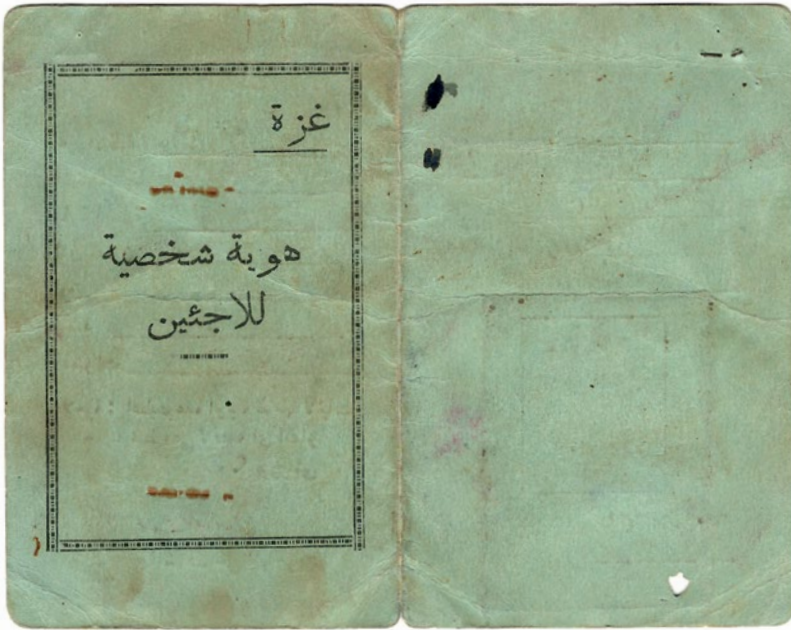 غزة
هوية شخصية
للاجئين